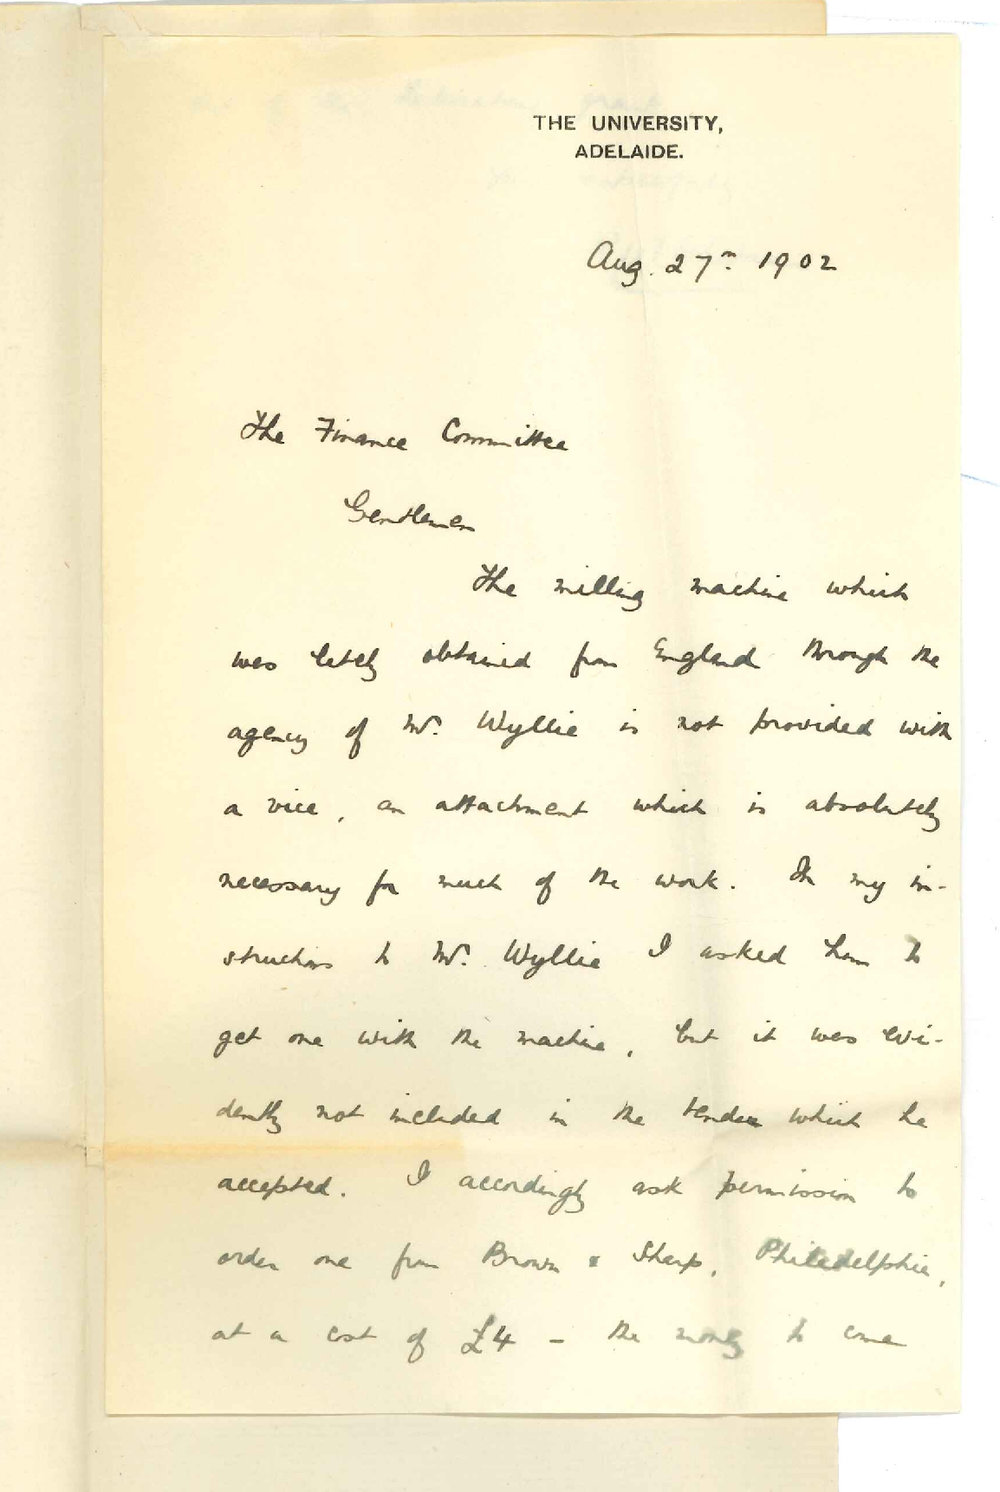 THE UNIVERSITY,
ADELAIDE.
Aug. 27th 1902
The Finance Committee
Gentlemen
The milling machine which
was lately obtained from England through the
agency of Mr. Wyllie is not provided with
a vice, an attachment which is absolutely
necessary for much of the work. In my in-
structions to Mr. Wyllie I asked him to
get one with the machine, but it was evi-
dently not included in the tender which he
accepted. I accordingly ask permission to
order one from Brown & Sharp, Philadelphia,
at a cost of £4 – the money to come